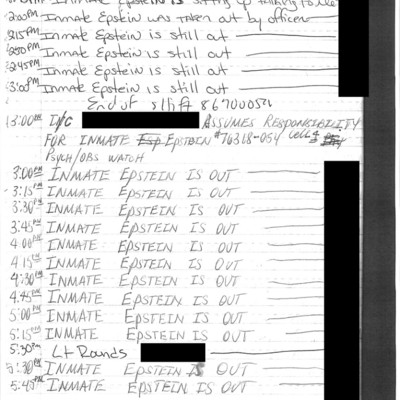 Inmate Epstein is sitting up talking to
2:00pm Inmate Epstein was taken out by officer
2:15pm Inmate Epstein is still out
2:30pm Inmate Epstein is still out
2:45pm Inmate Epstein is still out
3:00pm Inmate Epstein is still out
End of shift
3:00PM I/C ASSUMES RESPONSIBILITY
FOR INMATE Esp EPSTEIN #76318-054 Cell 4
PSYCH/OBS WATCH
3:00PM INMATE EPSTEIN IS OUT
3:15PM INMATE EPSTEIN IS OUT
3:30PM INMATE EPSTEIN IS OUT
3:45PM INMATE EPSTEIN IS OUT
4:00PM INMATE EPSTEIN IS OUT
4:15PM INMATE EPSTEIN IS OUT
4:30PM INMATE EPSTEIN IS OUT
4:45PM INMATE EPSTEIN IS OUT
5:00PM INMATE EPSTEIN IS OUT
5:15PM INMATE EPSTEIN IS OUT
5:30pm Lt Rounds
5:30PM INMATE EPSTEIN IS OUT
5:45PM INMATE EPSTEIN IS OUT